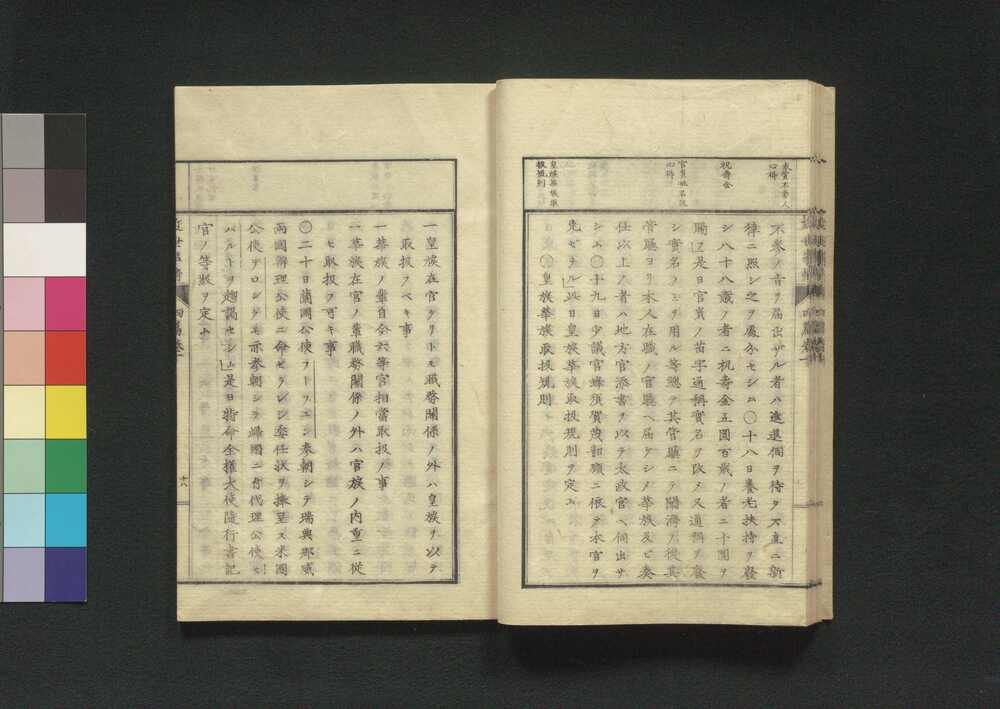 不参ノ旨ヲ届出サル者ハ進退伺ヲ待タス直ニ新
律ニ照シ之ヲ處分セシム〇十八日養老扶持ヲ廢
シ八十八歳ノ者ニ祝壽金五圓百歳ノ者ニ十圓ヲ
賜フ是日官員ノ苗字通稱實名ヲ改メ又通稱ヲ廢
シ實名ノミヲ用ル等總テ其管廳ニテ聞濟ノ後其
管廳ヨリ本人在職ノ官廳ヘ届ケシメ華族及ヒ奏
任以上ノ者ハ地方官添書ヲ以テ太政官ヘ伺出サ
シム〇十九日少議官蜂須賀茂韶願ニ依テ本官ヲ
免セラル此日皇族華族取扱規則ヲ定ム
〇皇族華族取扱規則
祝壽金
官員姓名改
心得
皇族華族取
扱規則
一皇族在官タリトモ職務關係ノ外ハ皇族ヲ以テ
取扱フヘキ事
一華族ノ輩自今六等官相當取扱ノ事
一華族在官ノ輩職務關係ノ外ハ官族ノ内重ニ從
ヒ取扱フ可キ事
〇二十日蘭國公使
參朝シテ瑞典那威
兩國辨理公使ニ命セラレシ委任狀ヲ捧呈ス米國
公使デロング モ亦參朝シテ歸國ニ付代理公使セ
パルトヲ趨謁セシム是日特命全權大使隨行書記
官ノ等級ヲ定ム
十八